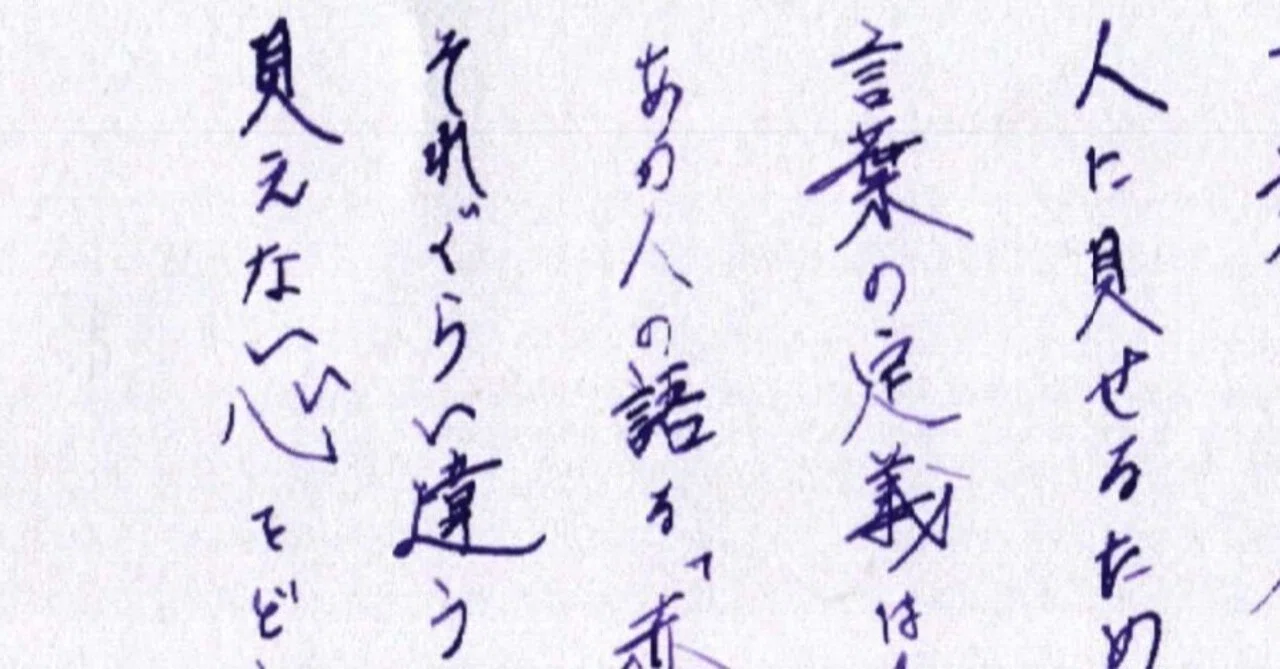 人に見せるため
言葉の定義は
あの人の語る「赤
それぐらい違う
見えない心をど